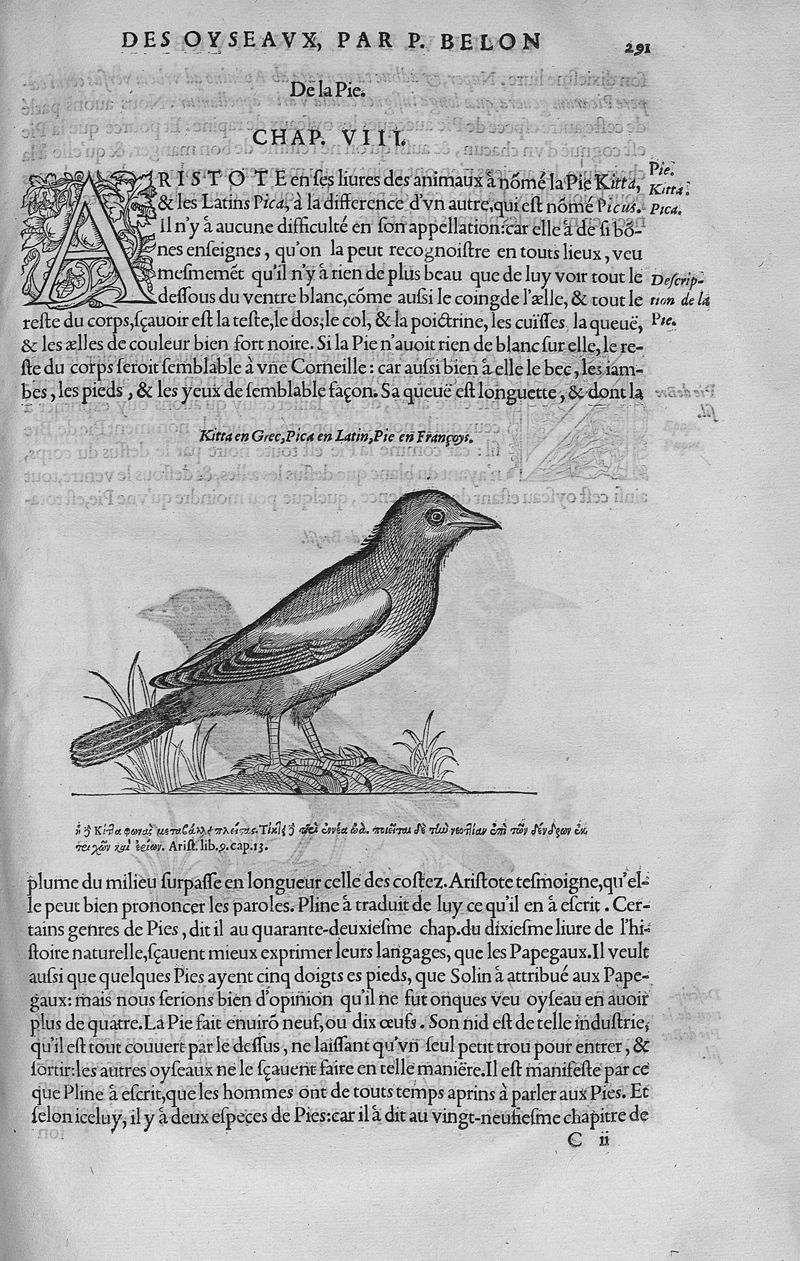 DES OYSEAVX, PAR P. BELON 291
De la Pie.
CHAP. VIII.
ARISTOTE en ſes liures des animaux à nõmé la Pie Kitta,
& les Latins Pica, à la difference d'vn autre, qui eſt nõmé Picus.
Il n'y à aucune difficulté en ſon appellation: car elle à de ſi bõ-
nes enſeignes, qu'on la peut recognoiſtre en touts lieux, veu
meſmemẽt qu'il n'y à rien de plus beau que de luy voir tout le
deſſous du ventre blanc, cõme auſsi le coing de l'ælle, & tout le
reſte du corps, ſçauoir eſt la teſte, le dos, le col, & la poictrine, les cuïſſes, la queuë,
& les ælles de couleur bien fort noire. Si la Pie n'auoit rien de blanc ſur elle, le re-
ſte du corps ſeroit ſemblable à vne Corneille: car auſsi bien à elle le bec, les iam-
bes, les pieds, & les yeux de ſemblable façon. Sa queuë eſt longuette, & dont la
Pie.
Kitta.
Pica.
Deſcrip-
tion de la
Pie.
Kitta en Grec, Pica en Latin, Pie en Françoys.
Ariſt. lib. 9. cap. 13.
plume du milieu ſurpaſſe en longueur celle des coſtez. Ariſtote teſmoigne, qu'el-
le peut bien prononcer les paroles. Pline à traduit de luy ce qu'il en à eſcrit. Cer-
tains genres de Pies, dit il au quarante-deuxieſme chap. du dixieſme liure de l'hi-
ſtoire naturelle, ſçauent mieux exprimer leurs langages, que les Papegaux. Il veult
auſsi que quelques Pies ayent cinq doigts es pieds, que Solin à attribué aux Pape-
gaux: mais nous ſerions bien d'opinion qu'il ne fut onques veu oyſeau en auoir
plus de quatre. La Pie fait enuirõ neuf, ou dix œufs. Son nid eſt de telle induſtrie,
qu'il eſt tout couuert par le deſſus, ne laiſſant qu'vn ſeul petit trou pour entrer, &
ſortir: les autres oyſeaux ne le ſçauent faire en telle maniere. Il eſt manifeſte par ce
que Pline à eſcrit, que les hommes ont de touts temps aprins à parler aux Pies. Et
ſelon iceluy, il y à deux eſpeces de Pies: car il à dit au vingt-neufieſme chapitre de
C ii